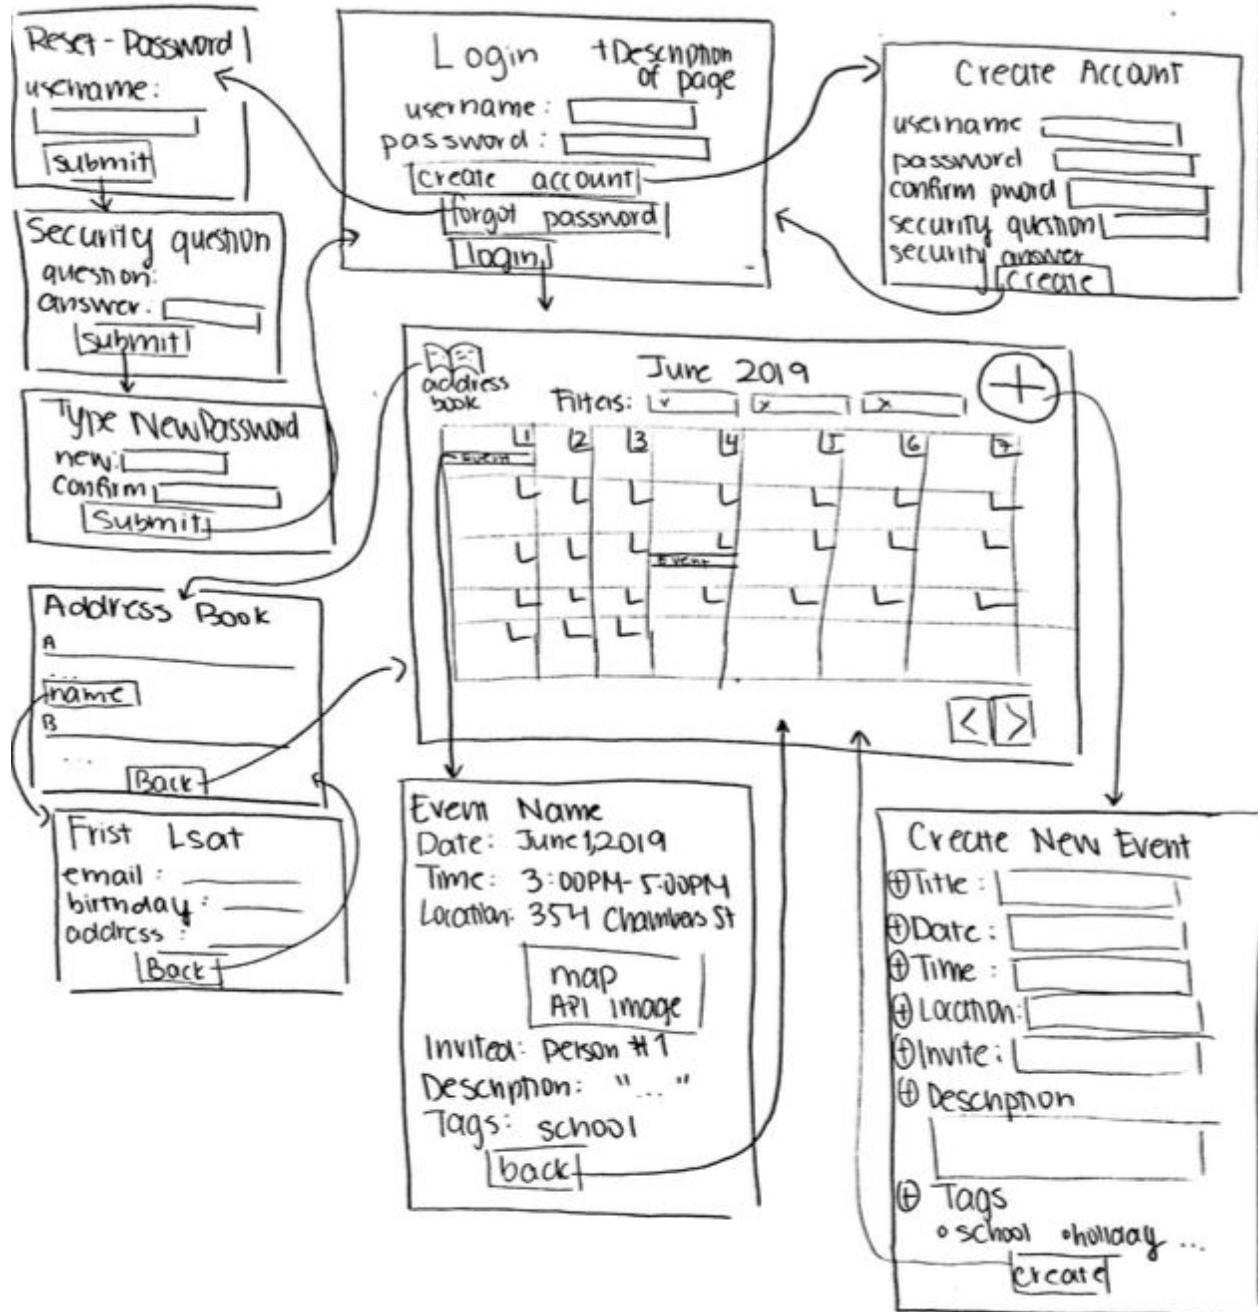 Reset-Password
username:
submit
Security question
question:
answer:
submit
Type New Password
new:
confirm
Submit
Login
+Description
of page
username:
password:
create account
forgot password
login
Create Account
username
password
confirm pword
security question
security answer
create
address
book
June 2019
Filters: v v v
1 2 3 4 5 6 7
Event
Event
< >
Address Book
A
...
name
B
...
Back
Frist Lsat
email:
birthday:
address:
Back
Event Name
Date: June 1, 2019
Time: 3:00PM-5:00PM
Location: 354 Chambers St
map
API image
Invited: person #1
Description: "..."
Tags: school
back
Create New Event
+ Title:
+ Date:
+ Time:
+ Location:
+ Invite:
+ Description
+ Tags
school holiday ...
create